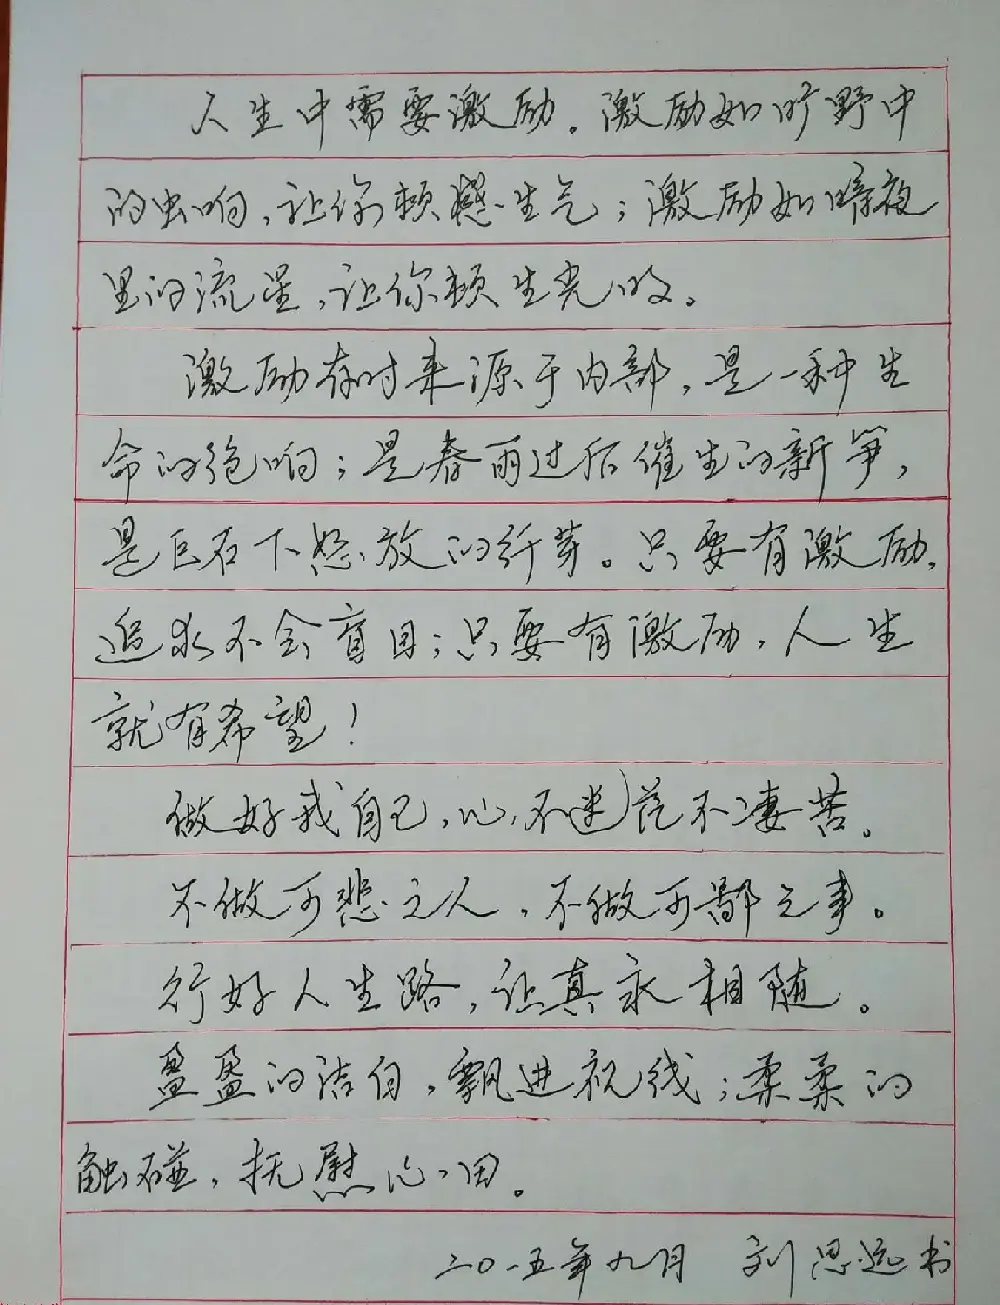 人生中需要激励。激励如旷野中
的虫响,让你顿感生气;激励如暗夜
里的流星,让你顿生光明。
激励有时来源于内部,是一种生
命的绝响;是春雨过后催生的新笋,
是巨石下怒放的纤芽。只要有激励,
追求不会盲目;只要有激励,人生
就有希望!
做好我自己,心不迷茫不凄苦。
不做可悲之人,不做可鄙之事。
行好人生路,让真永相随。
盈盈的洁白,飘进视线;柔柔的
触碰,抚慰心田。
二〇一五年九月 刘思远书